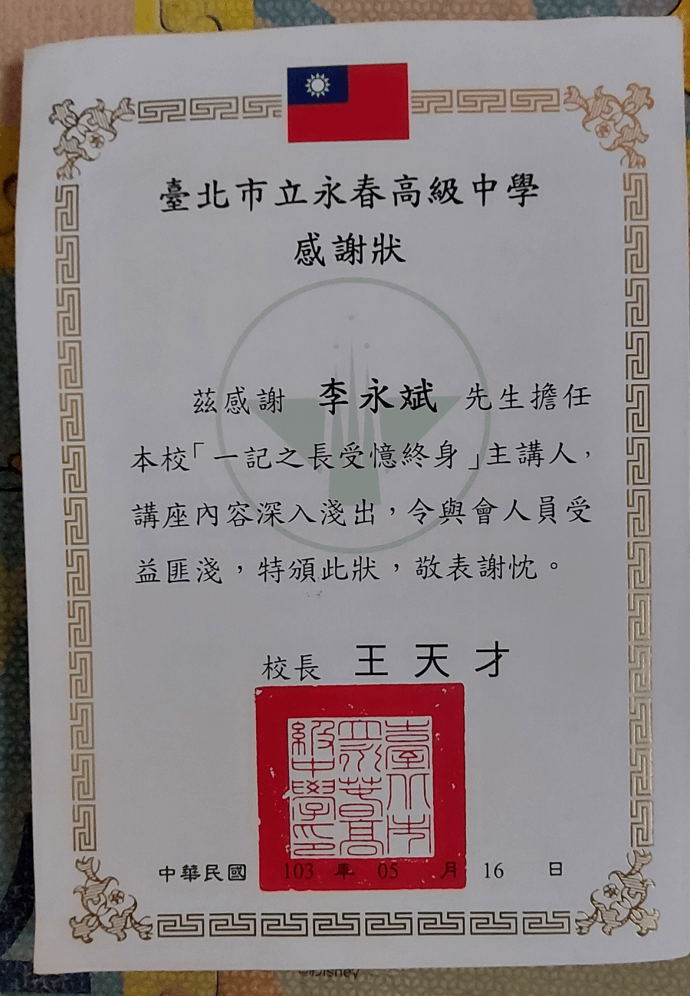 臺北市立永春高級中學
感謝狀
茲感謝 李永斌 先生擔任
本校「一記之長受憶終身」主講人，
講座內容深入淺出，令與會人員受
益匪淺，特頒此狀，敬表謝忱。
校長 王天才
臺北市
立永春高
級中學印
中華民國 103 年 05 月 16 日
Disney